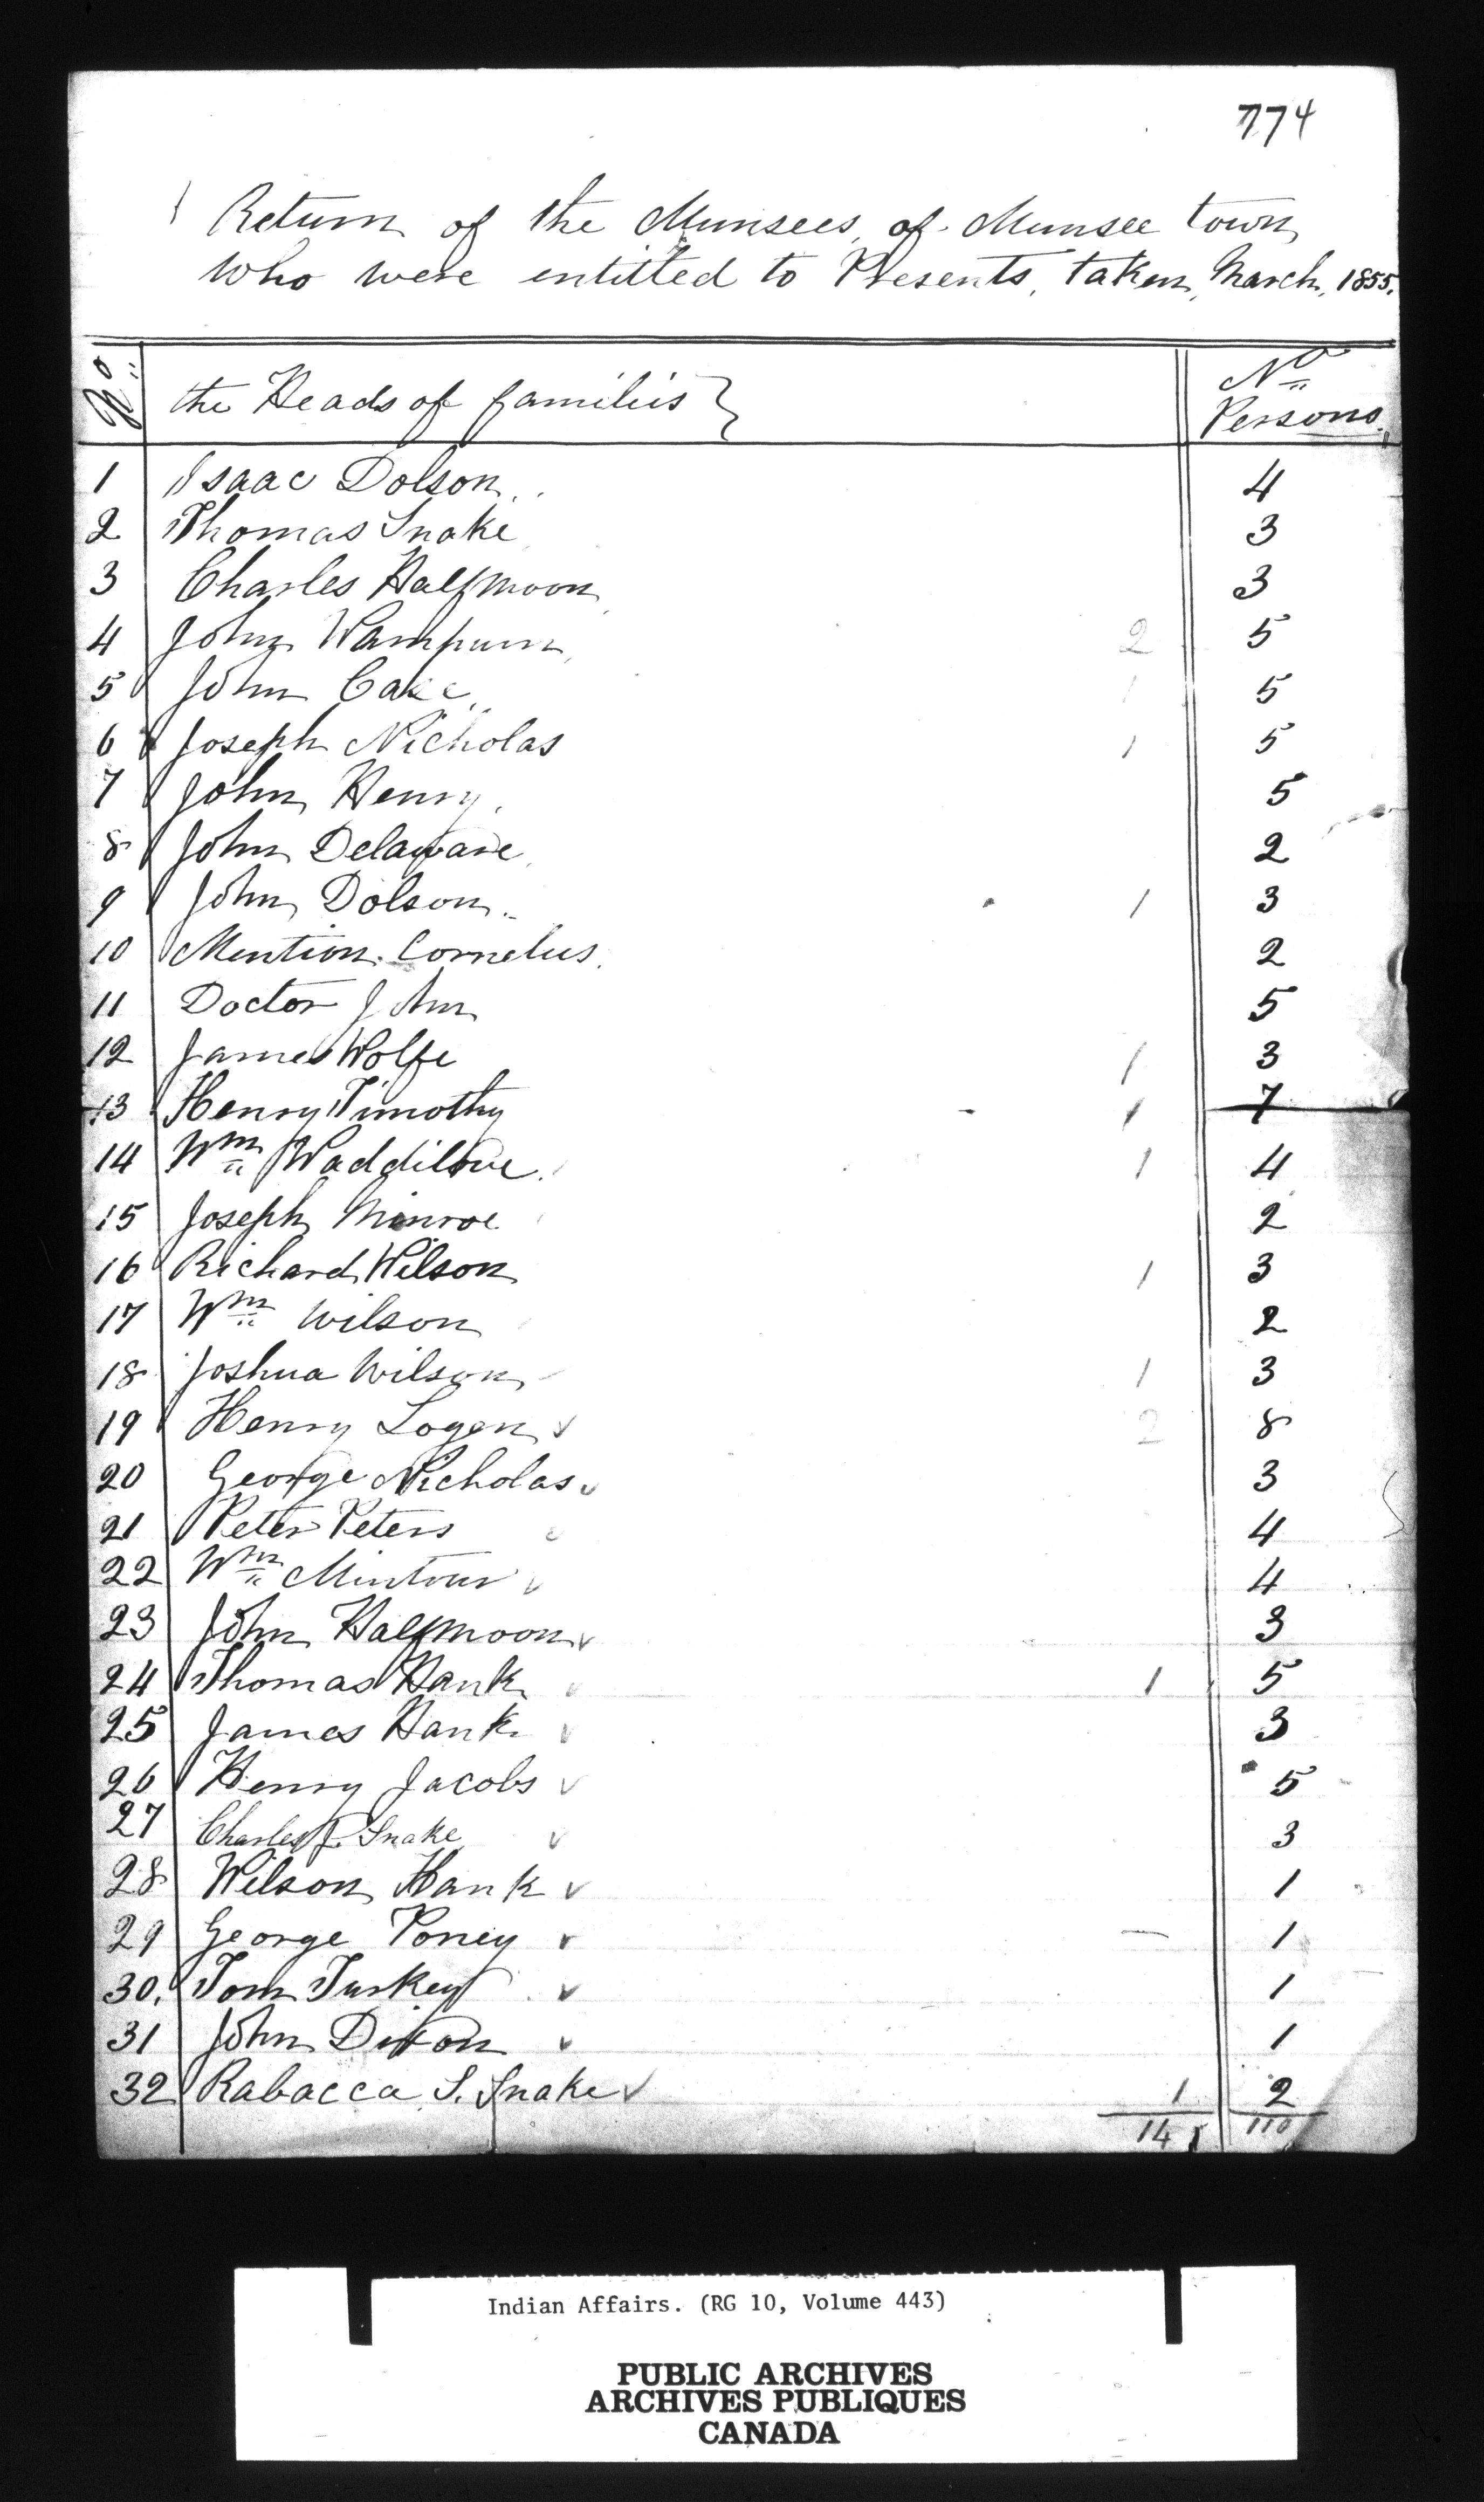 774
Return of the Munsees, of Munsee town
Who were entitled to Presents, taken, March, 1855.
No the Heads of families } No Persons
1 Isaac Dolson 4
2 Thomas Snake 3
3 Charles Halfmoon 3
4 John Wampum 2 5
5 John Cake 1 5
6 Joseph Nicholas 1 5
7 John Henry 5
8 John Delaware 2
9 John Dolson 1 3
10 Mention Cornelus 2
11 Doctor John 5
12 James Wolfe 1 3
13 Henry Timothy 1 7
14 Wm Waddilove 1 4
15 Joseph Minroe 2
16 Richard Wilson 1 3
17 Wm Wilson 2
18 Joshua Wilson 1 3
19 Henry Logan ✓ 2 8
20 George Nicholas ✓ 3
21 Peter Peters 4
22 Wm Mintour ✓ 4
23 John Halfmoon ✓ 3
24 Thomas Hank ✓ 1 5
25 James Hank ✓ 3
26 Henry Jacobs ✓ 5
27 Charles J. Snake ✓ 3
28 Wilson Hank ✓ 1
29 George Poney ✓ — 1
30. Tom Turkey ✓ 1
31 John Dixon ✓ 1
32 Rabacca S. Snake ✓ 1 2
14 110
Indian Affairs. (RG 10, Volume 443)
PUBLIC ARCHIVES
ARCHIVES PUBLIQUES
CANADA